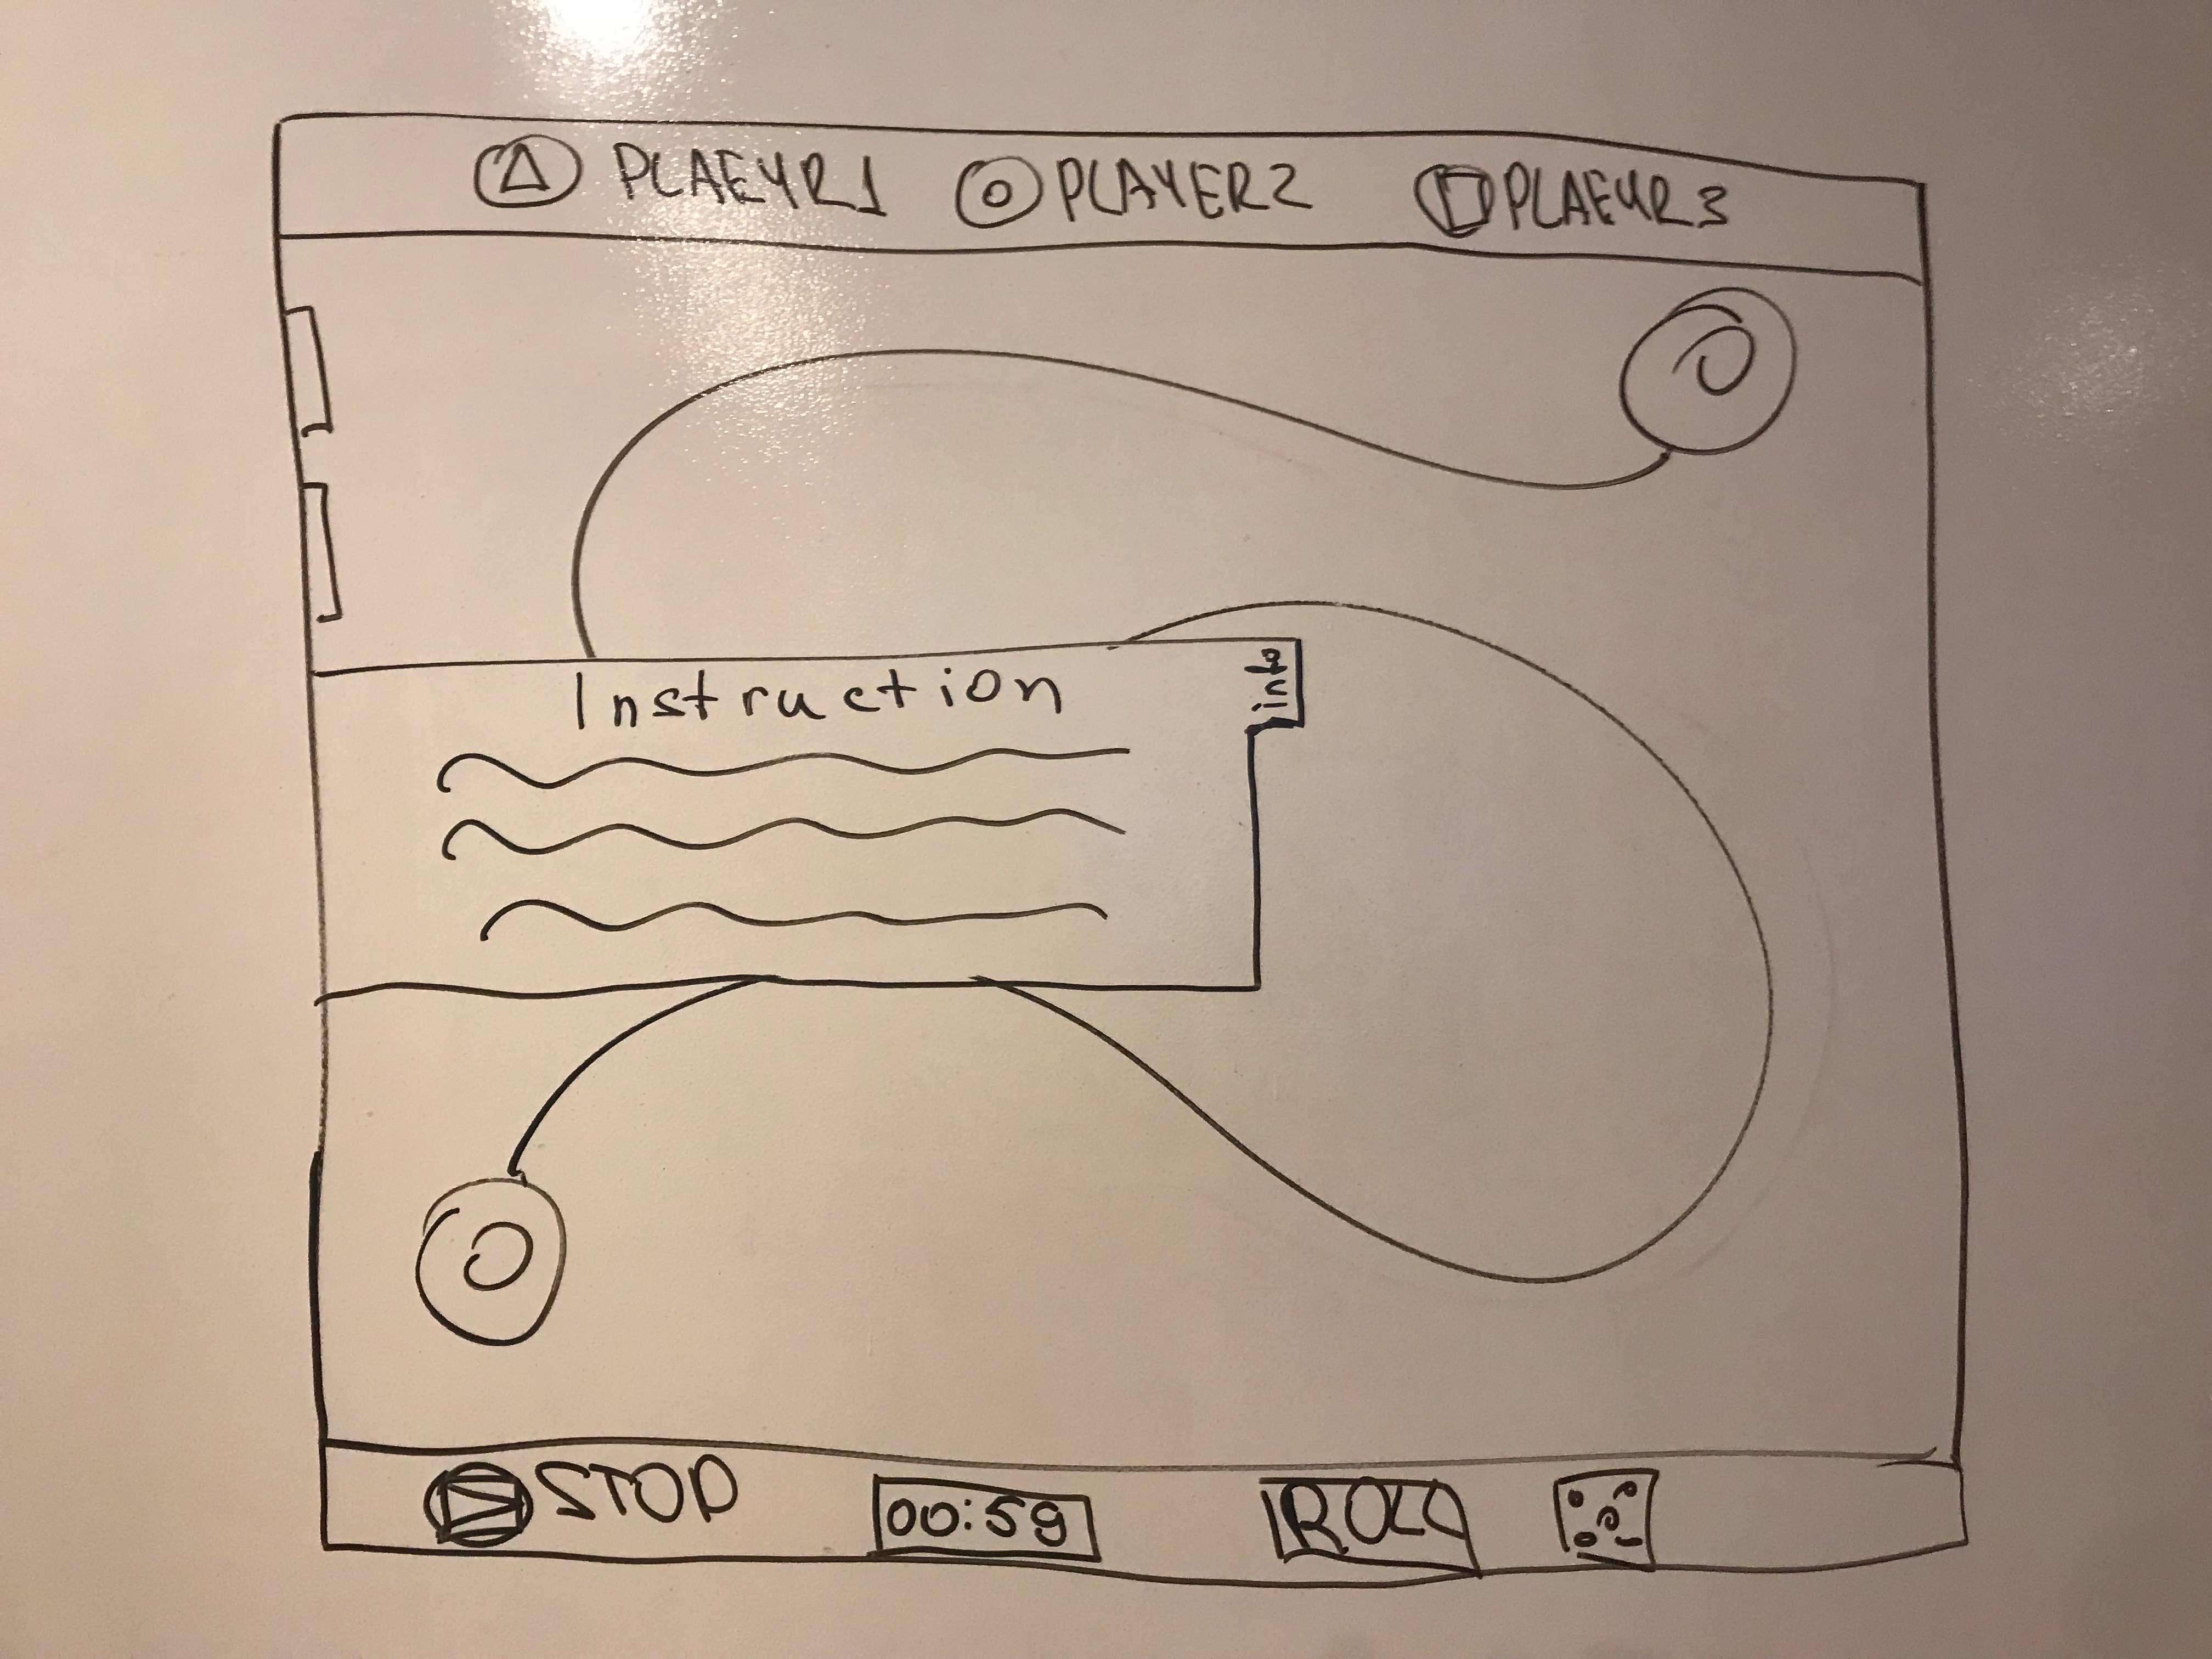 PLAEYR1 PLAYER2 PLAEYR3
Instruction
info
STOP 00:59 ROLL